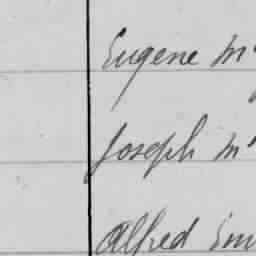 Eugene Mc
Joseph Mc
Alfred Em